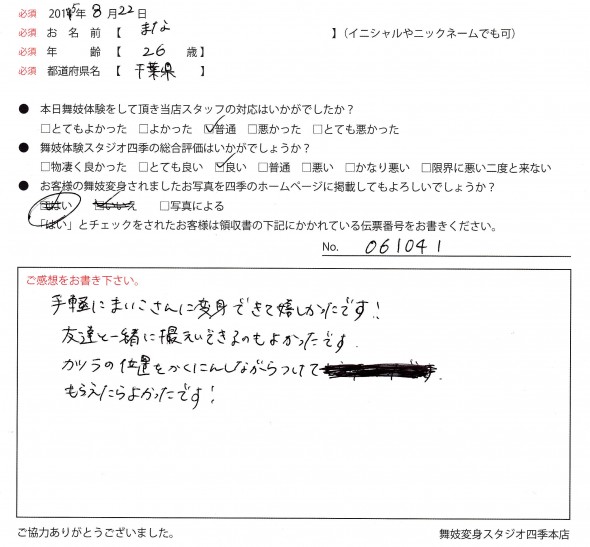 必須 2015年 8月 22日
必須 お名前【 まな 】(イニシャルやニックネームでも可)
必須 年 齢【 26 歳】
必須 都道府県名【 千葉県 】
● 本日舞妓体験をして頂き当店スタッフの対応はいかがでしたか?
□とてもよかった □よかった ☑普通 □悪かった □とても悪かった
● 舞妓体験スタジオ四季の総合評価はいかがでしょうか?
□物凄く良かった □とても良い ☑良い □普通 □悪い □かなり悪い □限界に悪い二度と来ない
● お客様の舞妓変身されましたお写真を四季のホームページに掲載してもよろしいでしょうか?
□はい □いいえ □写真による
「はい」とチェックをされたお客様は領収書の下記にかかれている伝票番号をお書きください。
No. 061041
ご感想をお書き下さい。
手軽にまいこさんに変身できて嬉しかったです!
友達と一緒に撮えいできるのもよかったです.
カツラの位置をかくにんしながらつけて
もらえたらよかったです!
ご協力ありがとうございました。 舞妓変身スタジオ四季本店